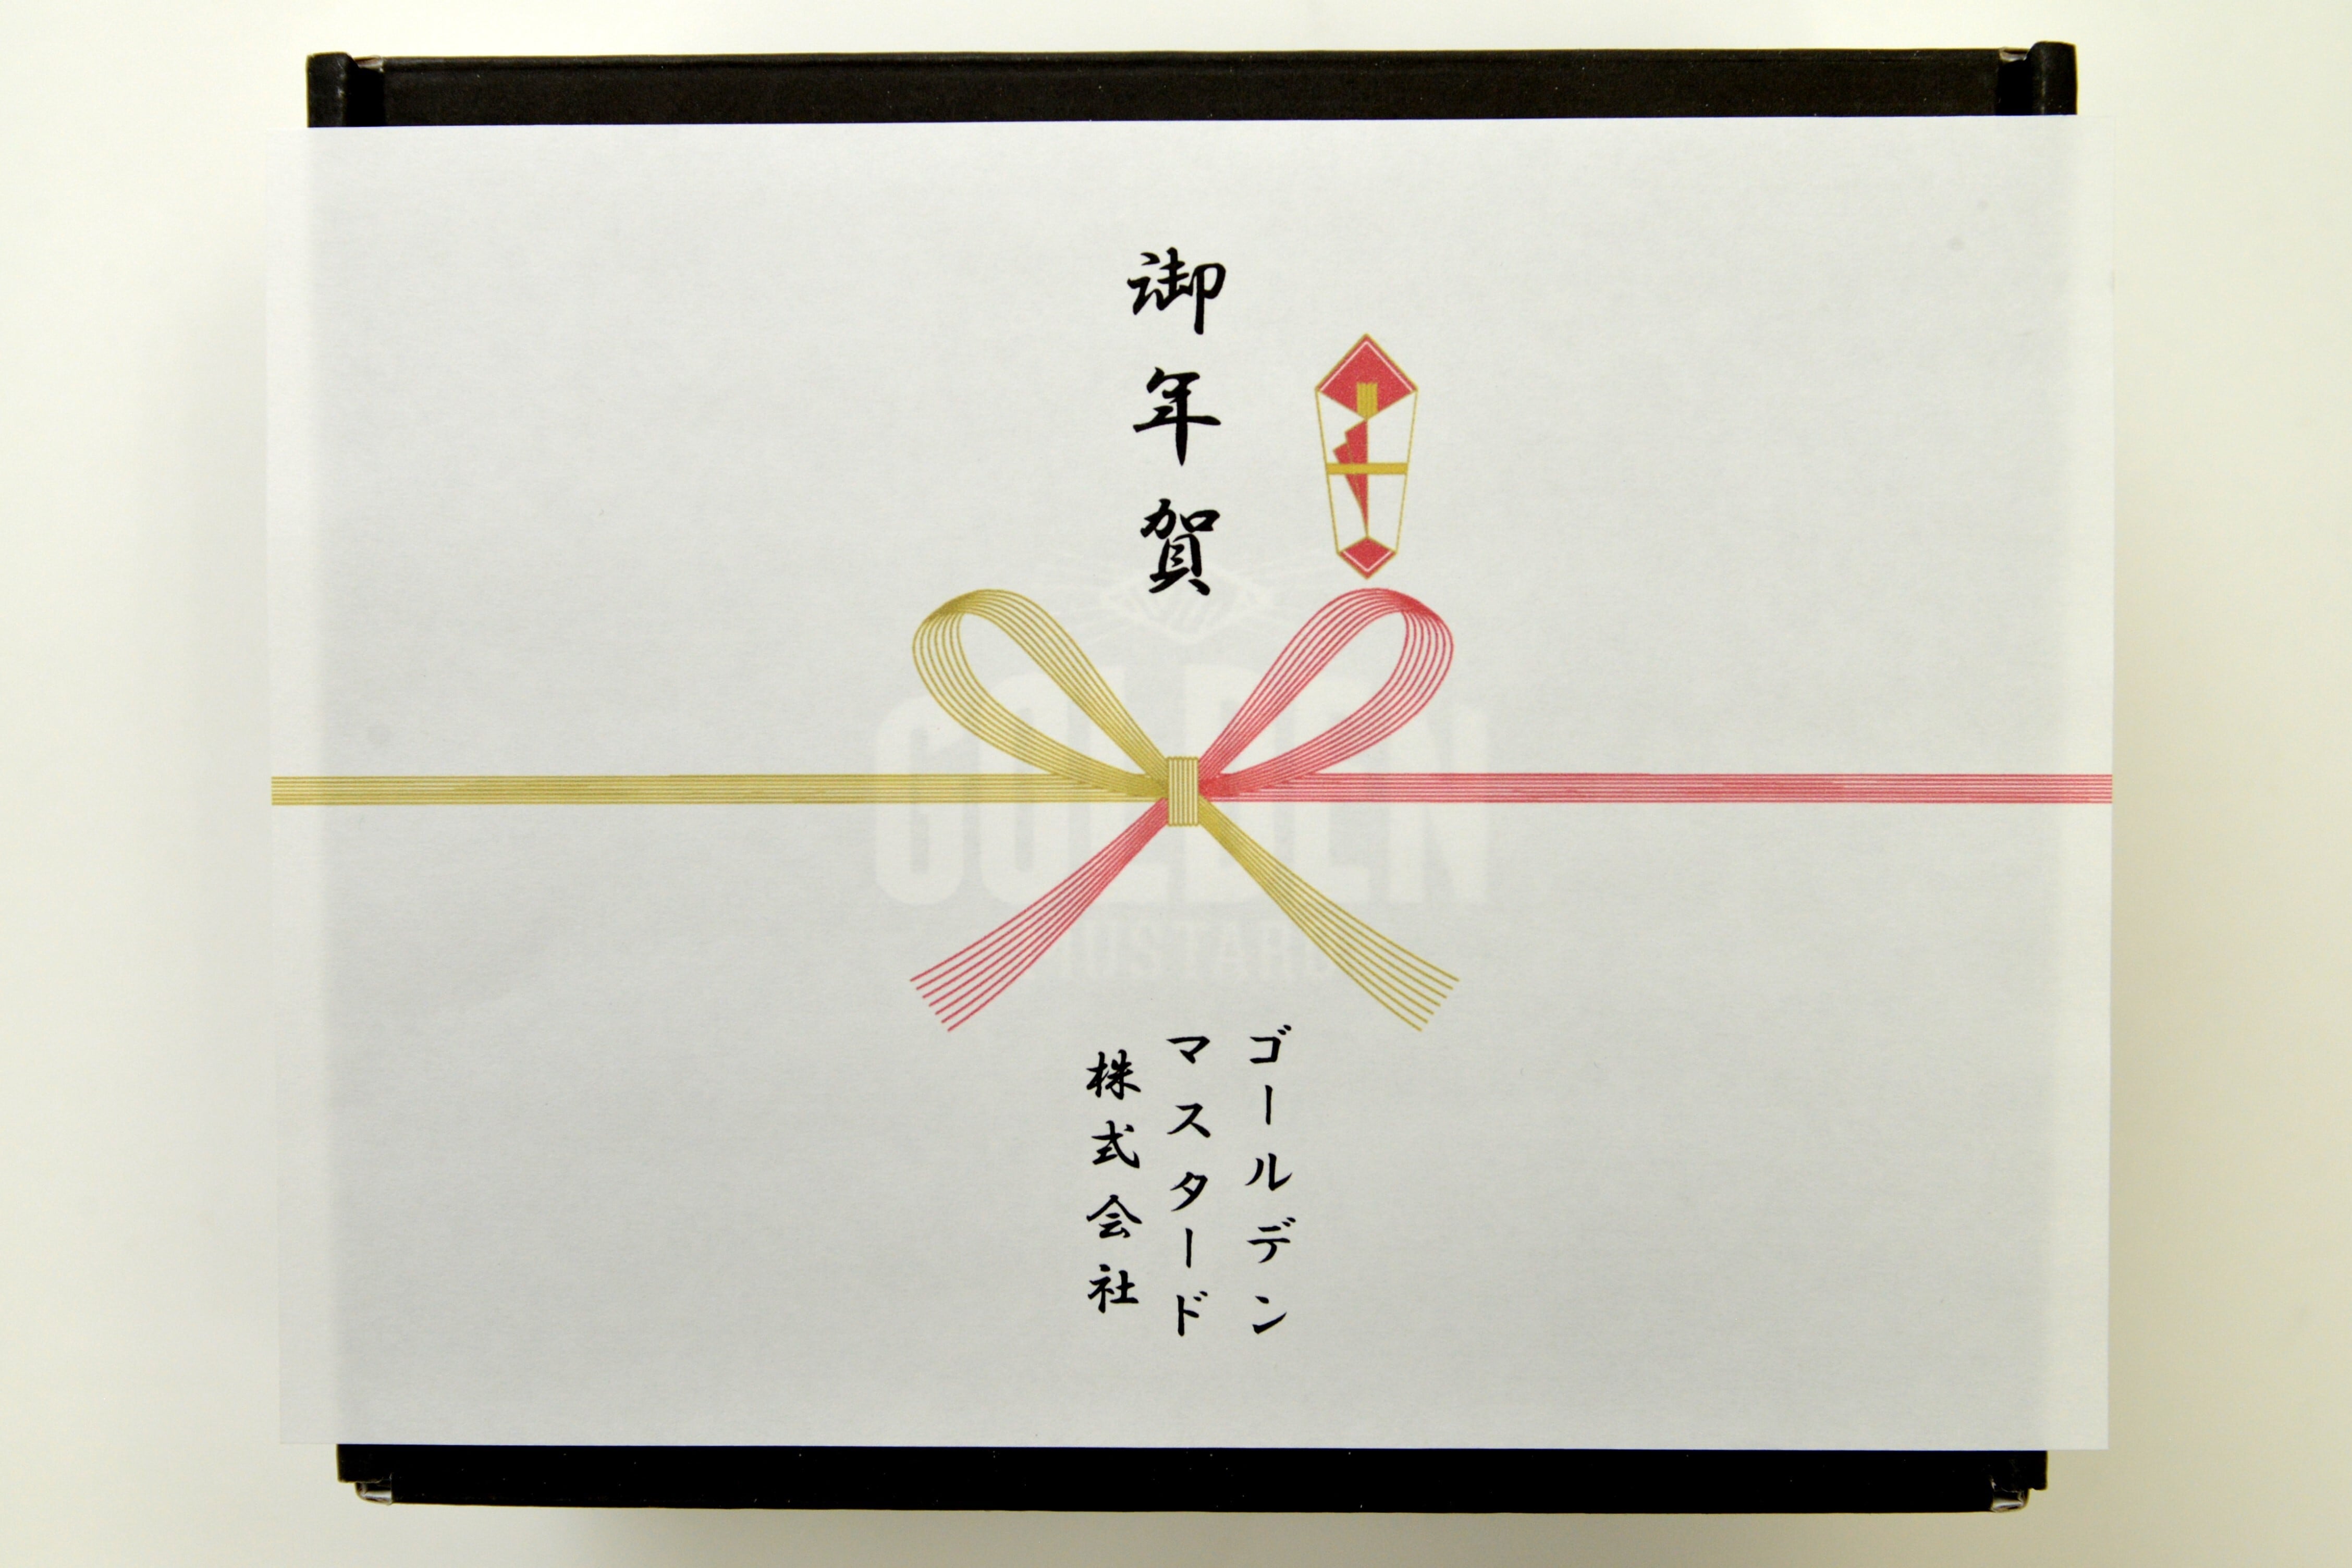 御年賀
ゴールデン
マスタード
株式会社
GOLDEN
MUSTARD